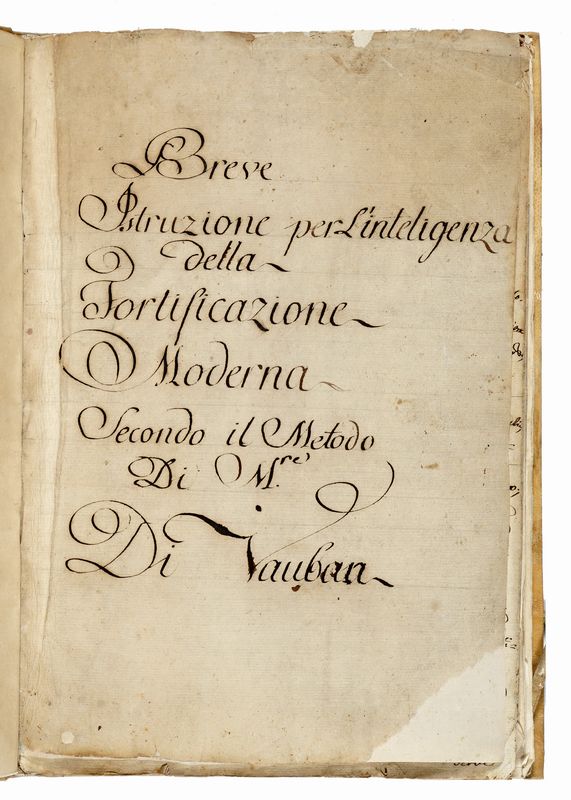 Breve
Istruzione per L'inteligenza
della
Fortificazione
Moderna
Secondo il Metodo
Di M.re
Di Vauban